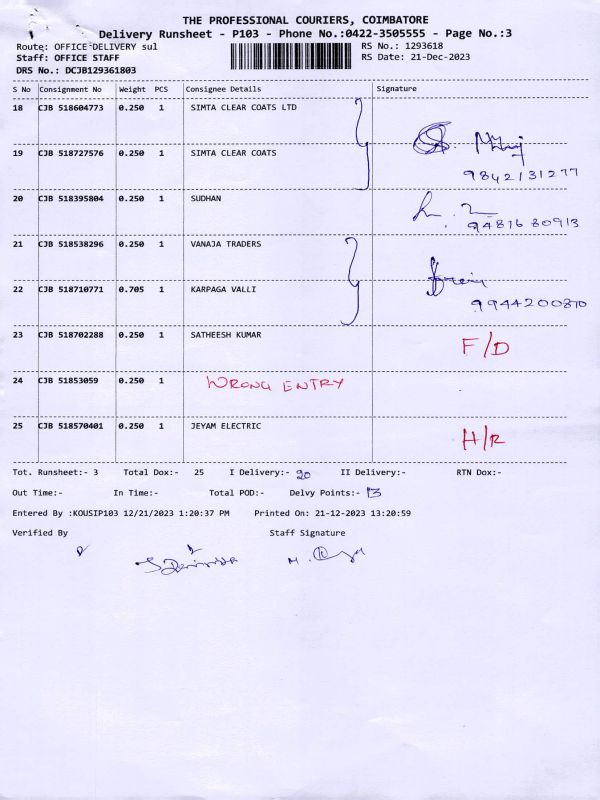 THE PROFESSIONAL COURIERS, COIMBATORE
Delivery Runsheet - P103 - Phone No.:0422-3505555 - Page No.:3
Route: OFFICE DELIVERY sul RS No.: 1293618
Staff: OFFICE STAFF RS Date: 21-Dec-2023
DRS No.: DCJB129361803
S No Consignment No Weight PCS Consignee Details Signature
18 CJB 518604773 0.250 1 SIMTA CLEAR COATS LTD
19 CJB 518727576 0.250 1 SIMTA CLEAR COATS
9842131277
20 CJB 518395804 0.250 1 SUDHAN
94816 80913
21 CJB 518538296 0.250 1 VANAJA TRADERS
22 CJB 518710771 0.705 1 KARPAGA VALLI
9944200870
23 CJB 518702288 0.250 1 SATHEESH KUMAR F/D
24 CJB 51853059 0.250 1 WRONG ENTRY
25 CJB 518570401 0.250 1 JEYAM ELECTRIC H/R
Tot. Runsheet:- 3 Total Dox:- 25 I Delivery:- 20 II Delivery:- RTN Dox:-
Out Time:- In Time:- Total POD:- Delvy Points:- 13
Entered By :KOUSIP103 12/21/2023 1:20:37 PM Printed On: 21-12-2023 13:20:59
Verified By Staff Signature